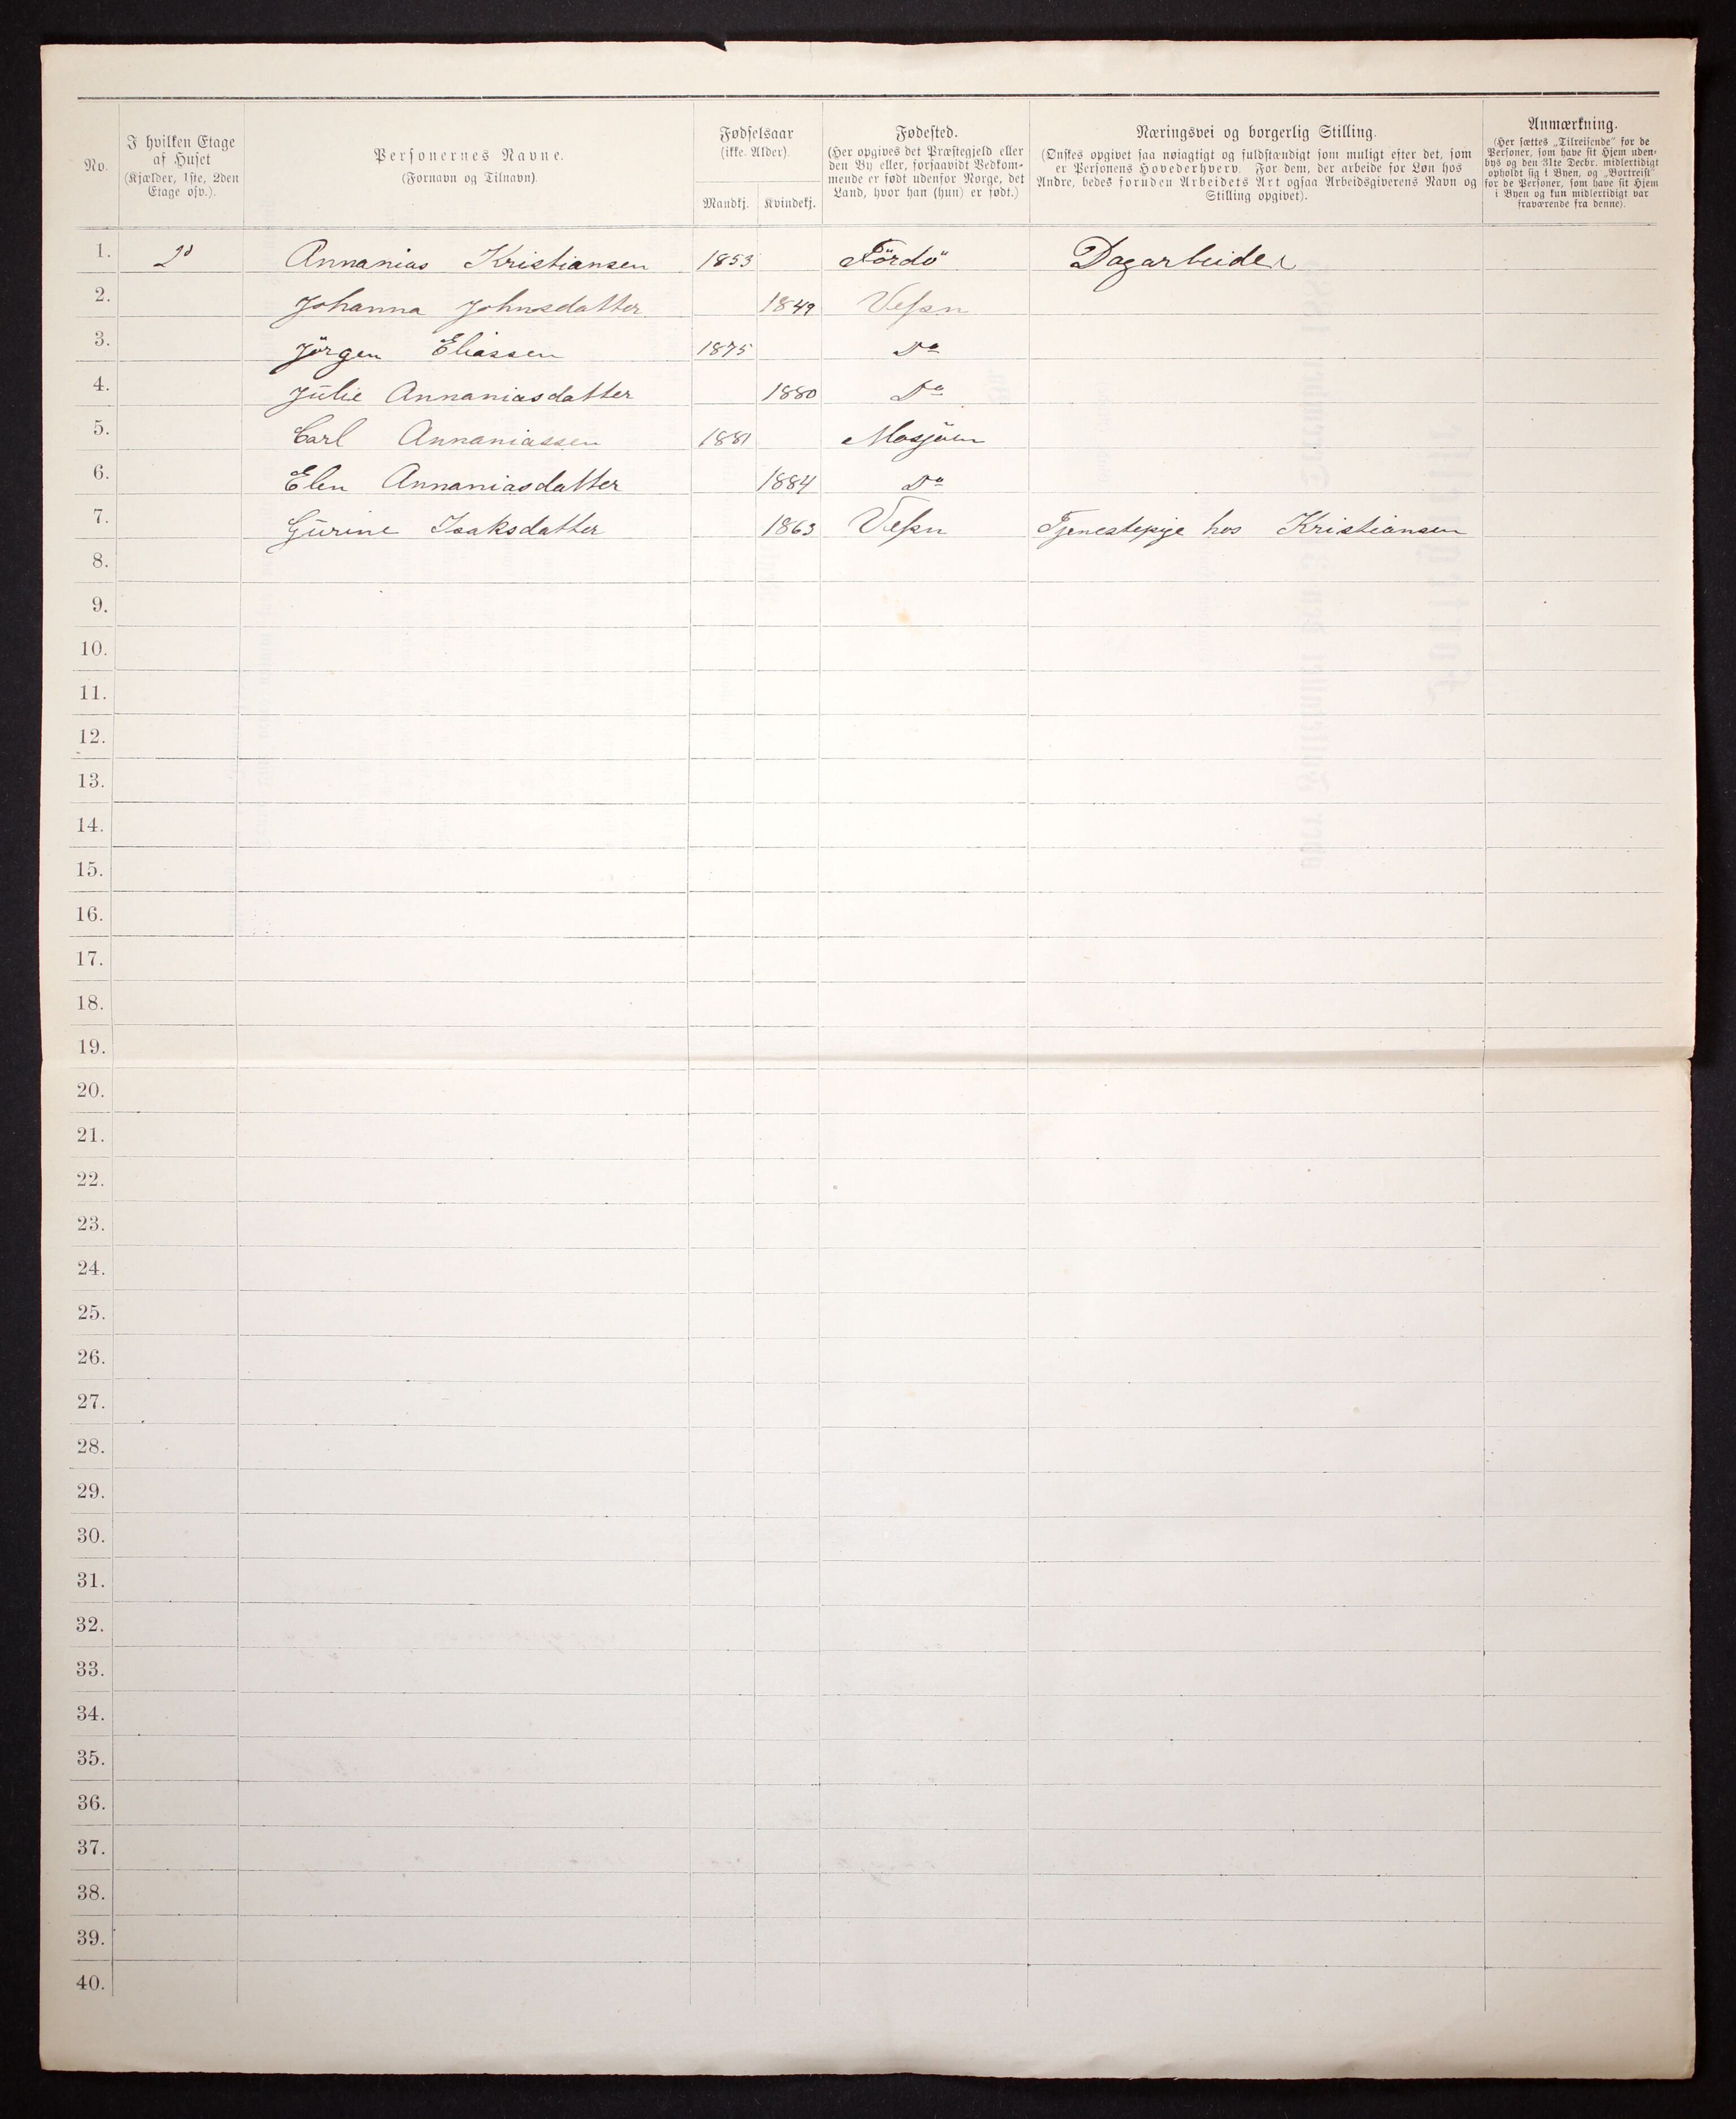 No.
I hvilken Etage af Huset
(Kjælder, 1ste, 2den Etage osv.).
Personernes Navne.
(Fornavn og Tilnavn).
Fødselsaar
(ikke Alder).
Mandkj. Kvindekj.
Fødested.
(Her opgives det Præstegjeld eller
den By eller, forsaavidt Vedkom-
mende er født udenfor Norge, det
Land, hvor han (hun) er født.)
Næringsvei og borgerlig Stilling.
(Ønskes opgivet saa nøiagtigt og fuldstændigt som muligt efter det, som
er Personens Hovederhverv. For dem, der arbeide for Løn hos
Andre, bedes foruden Arbeidets Art ogsaa Arbeidsgiverens Navn og
Stilling opgivet).
Anmærkning.
(Her sættes „Tilreisende" for de
Personer, som have sit Hjem uden-
bys og den 31te Decbr. midlertidigt
opholdt sig i Byen, og „Bortreist"
for de Personer, som have sit Hjem
i Byen og kun midlertidigt var
fraværende fra denne).
1. Annanias Kristiansen 1853 Dagarbeider
2. Johanna Johnsdatter 1849 Vefsn
3. Jörgen Eliassen 1875 Do
4. Julie Annaniasdatter 1880 Do
5. Carl Annaniassen 1881 Mosjöen
6. Elen Annaniasdatter 1884 Do
7. Gurine Isaksdatter 1863 Vefsn Tjenestepige hos Kristiansen
8.
9.
10.
11.
12.
13.
14.
15.
16.
17.
18.
19.
20.
21.
22.
23.
24.
25.
26.
27.
28.
29.
30.
31.
32.
33.
34.
35.
36.
37.
38.
39.
40.